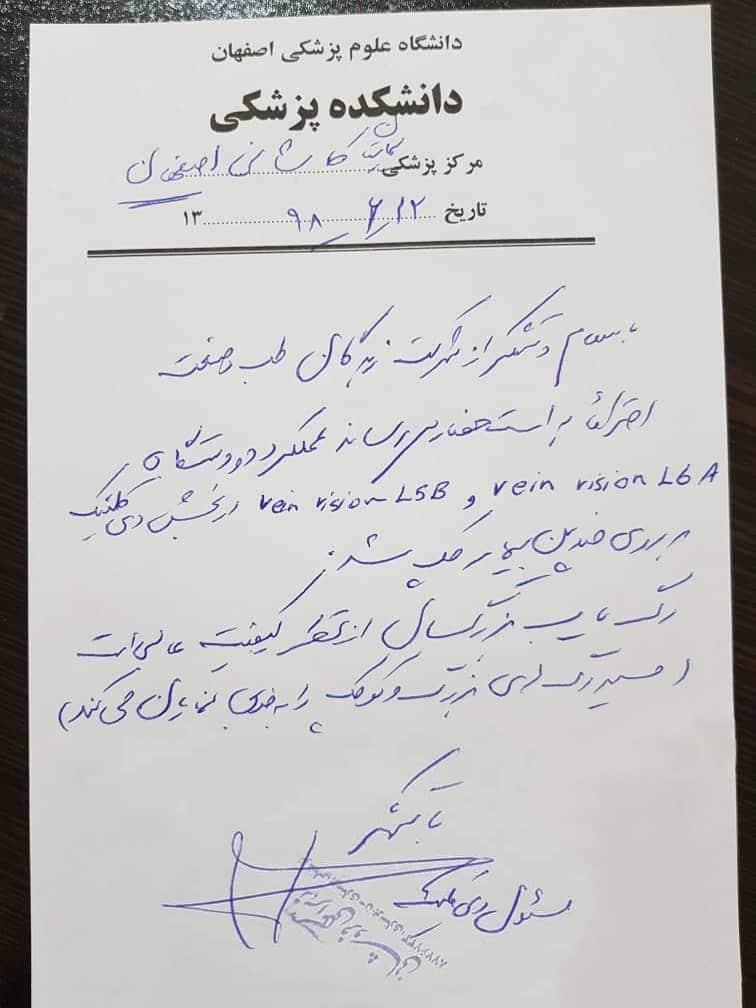 دانشگاه علوم پزشکی اصفهان
دانشکده پزشکی
مرکز پزشکی کاشانی اصفهان
تاریخ ۱۳۹۸/۶/۱۲
با سلام و تشکر از شرکت زیست گامان طب و صنعت
احتراماً به استحضار می رساند عملکرد دو دستگاه
vein vision L6A و vein vision L5B در بخش دی کلینیک
بر روی چندین بیمار چک شد.
رگ یاب بزرگسال از نظر کیفیت عالی است
(مسیر رگ های بزرگ و کوچک را به خوبی نمایان می کند)
با تشکر
مسئول دی کلینیک